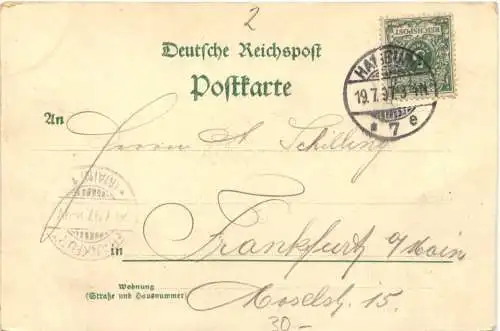 2
Deutsche Reichspost
Postkarte
REICHSPOST
HAMBURG
19.7.97.3-4N
* 7 e
An Herrn A. Schilling
in Frankfurt a/Main
Wohnung
(Straße und Hausnummer)
Moselstr. 15.
30.-